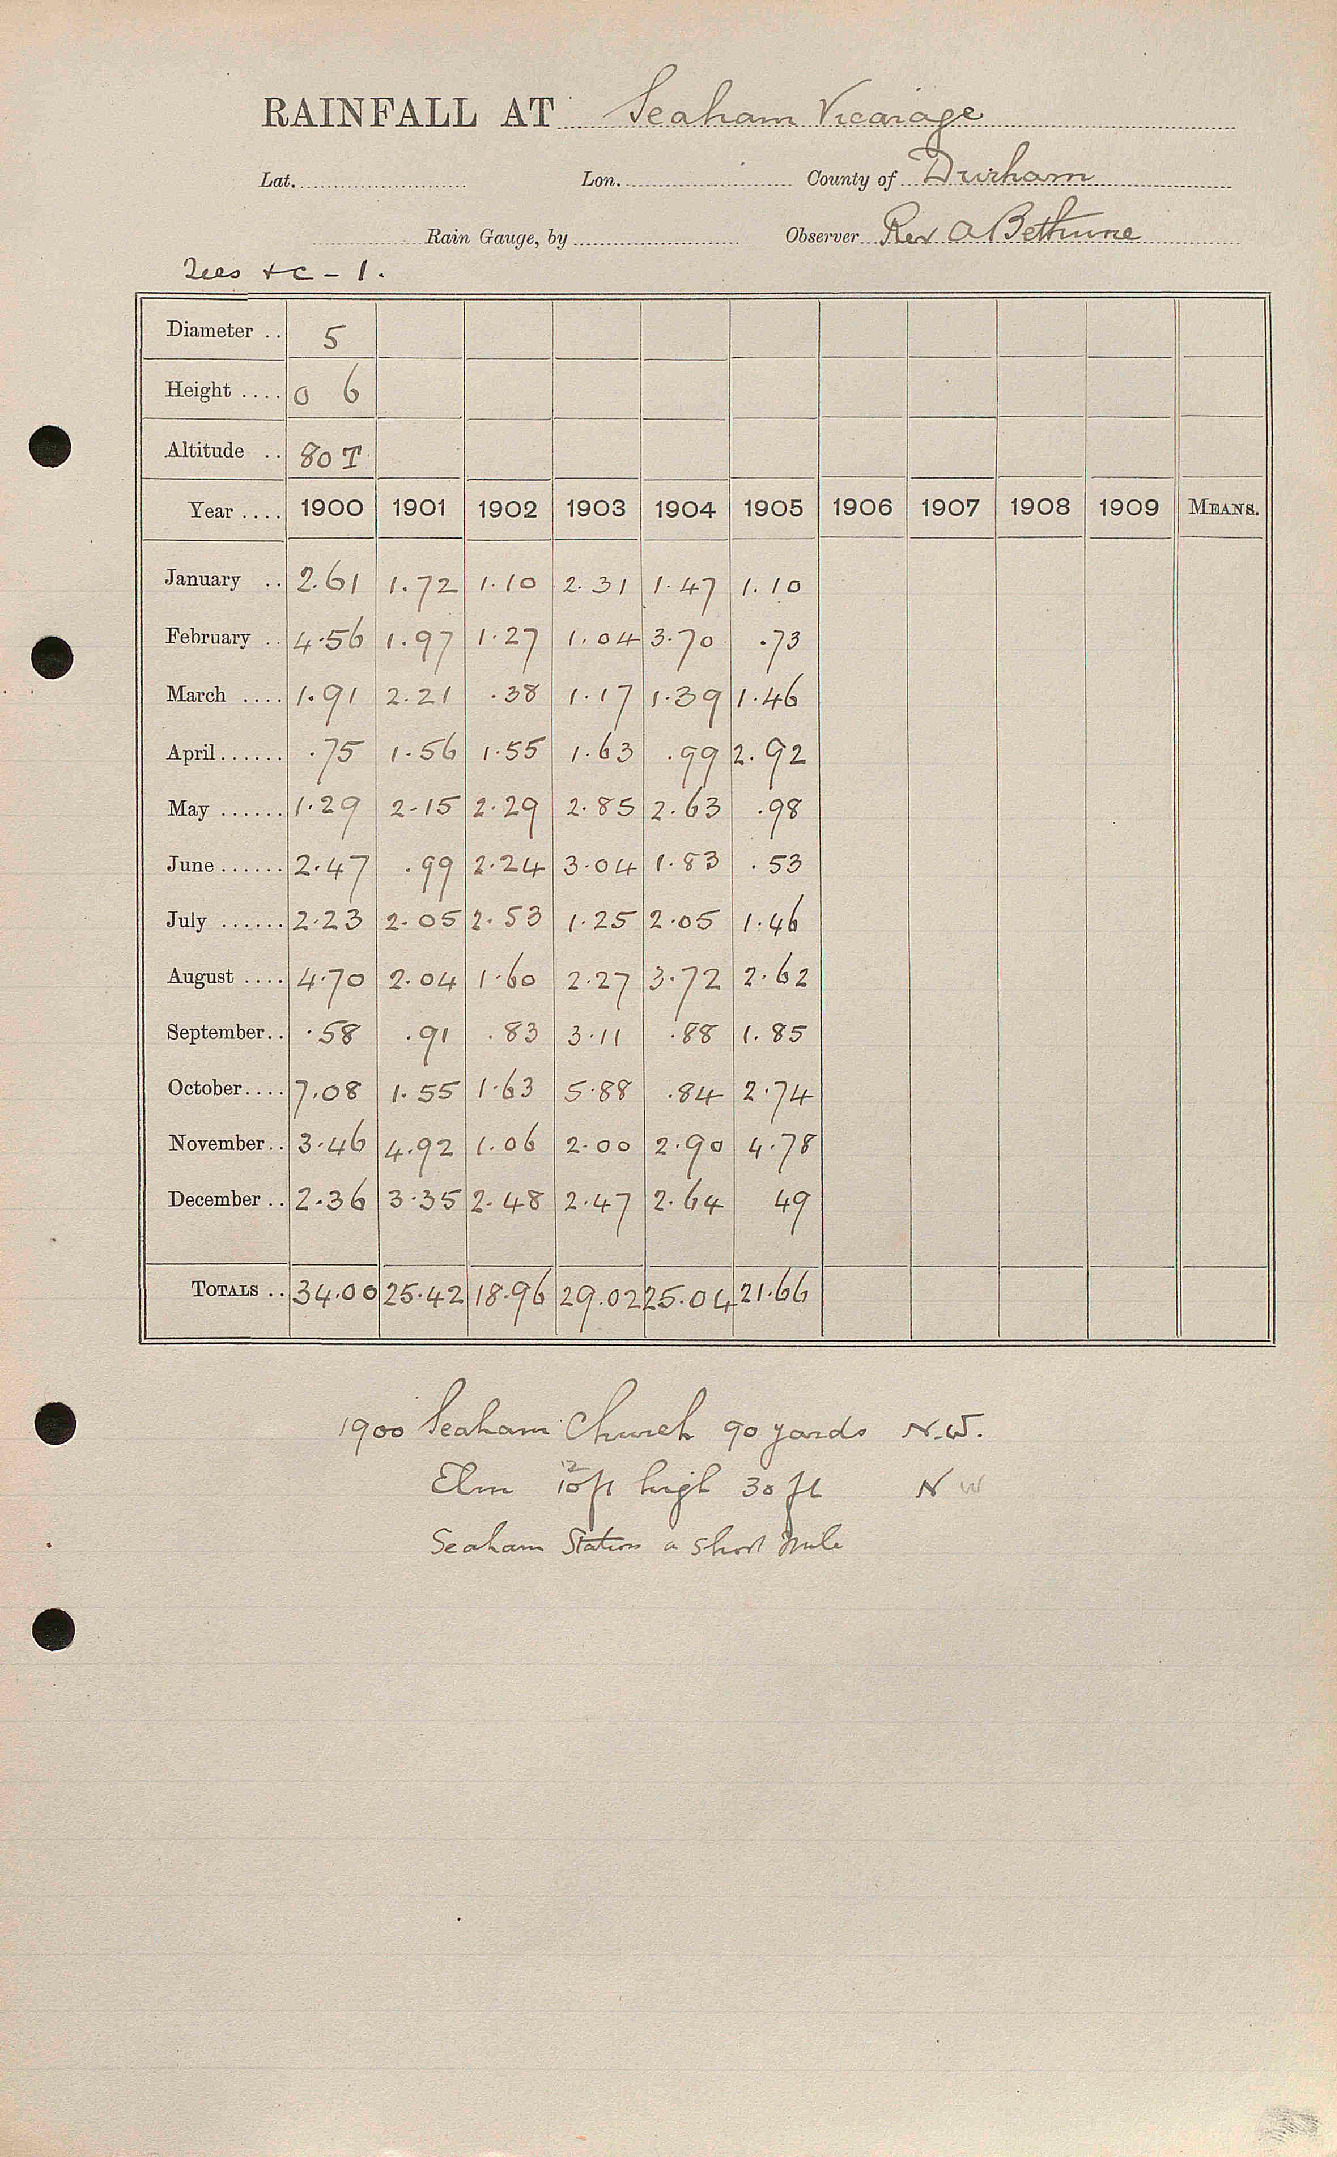 RAINFALL AT Seaham Vicarage
Lat. Lon. County of Durham
Rain Gauge, by Observer Rev A Bethune
Tees & C - 1.
Diameter .. 5
Height .... 0 6
Altitude .. 80 T
Year .... 1900 1901 1902 1903 1904 1905 1906 1907 1908 1909 MEANS.
January .. 2.61 1.72 1.10 2.31 1.47 1.10
February .. 4.56 1.97 1.27 1.04 3.70 .73
March .... 1.91 2.21 .38 1.17 1.39 1.46
April ...... .75 1.56 1.55 1.63 .99 2.92
May ...... 1.29 2.15 2.29 2.85 2.63 .98
June ...... 2.47 .99 2.24 3.04 1.83 .53
July ...... 2.23 2.05 2.53 1.25 2.05 1.46
August .... 4.70 2.04 1.60 2.27 3.72 2.62
September .. .58 .91 .83 3.11 .88 1.85
October .... 7.08 1.55 1.63 5.88 .84 2.74
November .. 3.46 4.92 1.06 2.00 2.90 4.78
December .. 2.36 3.35 2.48 2.47 2.64 49
TOTALS .. 34.00 25.42 18.96 29.02 25.04 21.66
1900 Seaham Church 90 yards N.W.
Elm 12 ft high 30 ft N W
Seaham Station a short mile